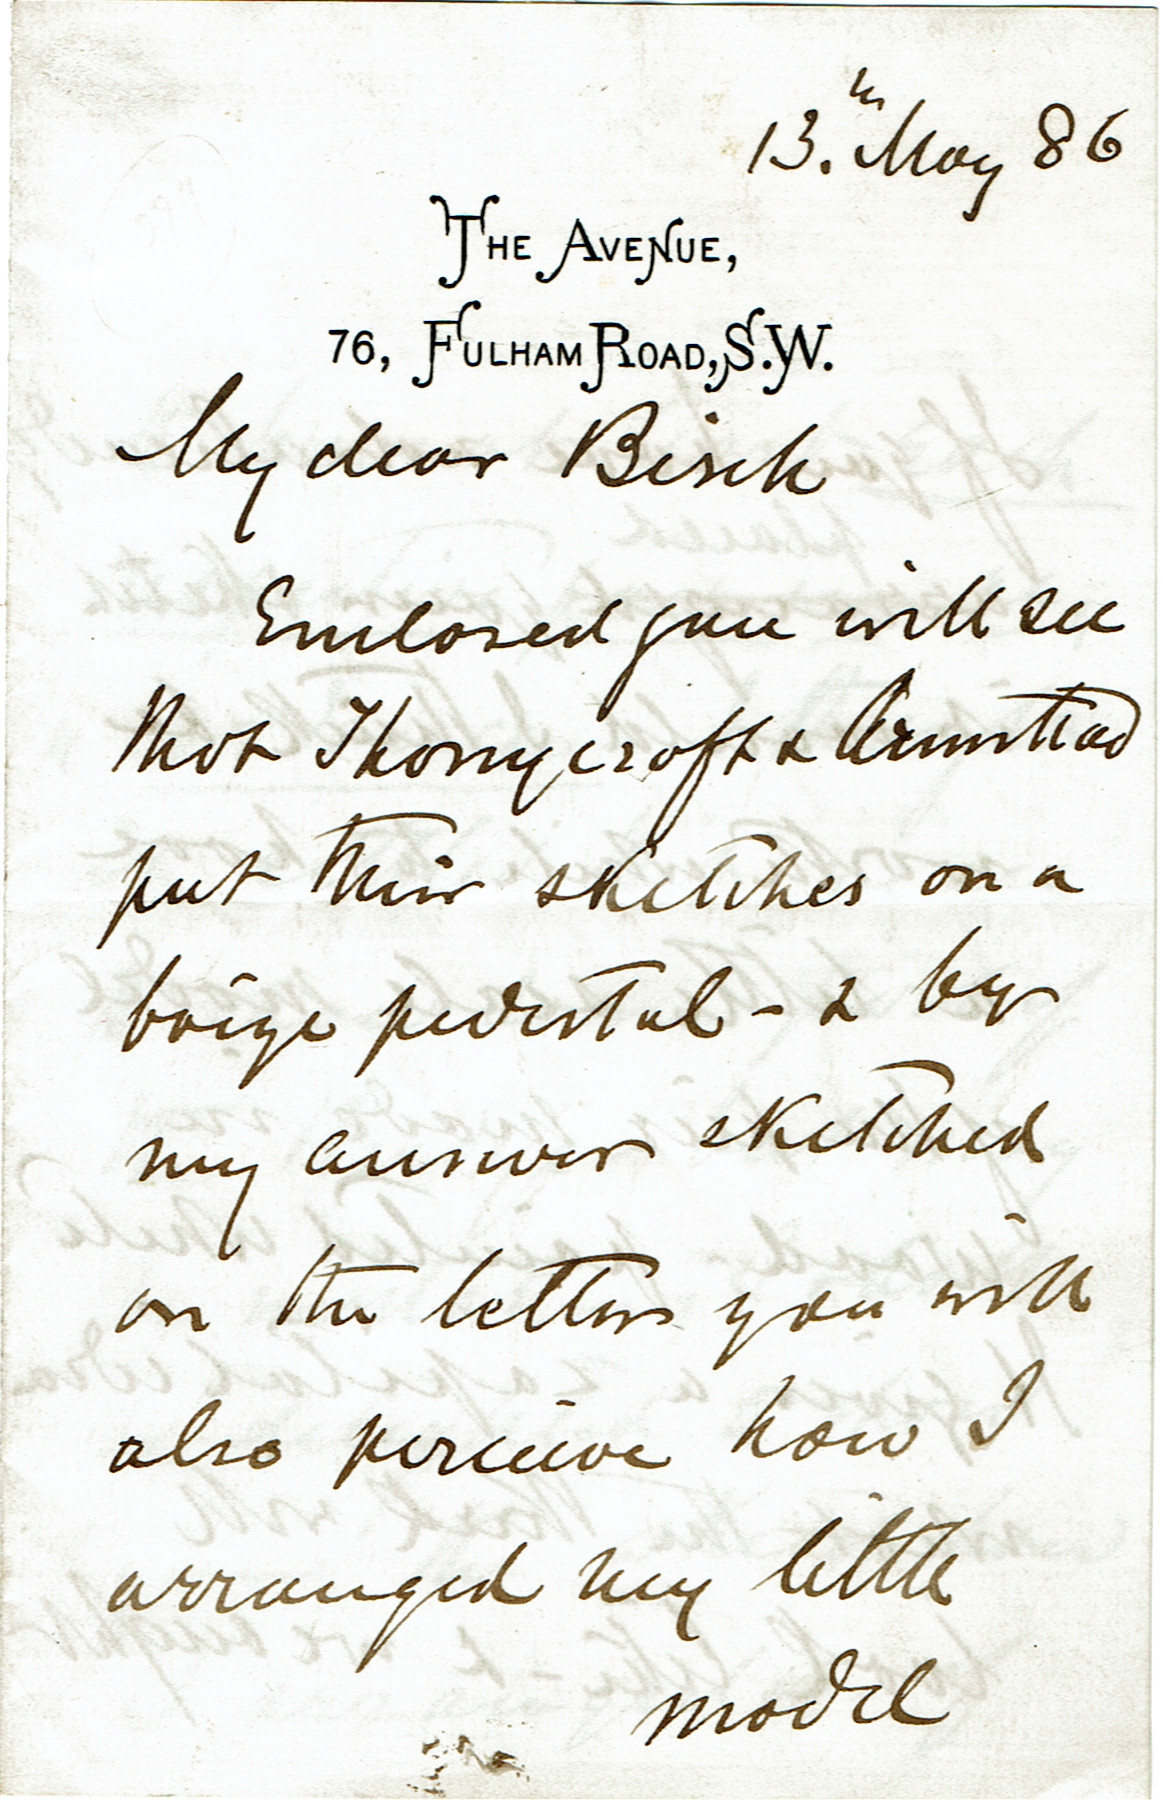 13.th May 86
THE AVENUE,
76, FULHAM ROAD, S.W.
My dear Birch
Enclosed you will see
that Thornycroft & Armstead
put their sketches on a
baize pedestal - & by
my answer sketched
on the letter you will
also perceive how I
arranged my little
model